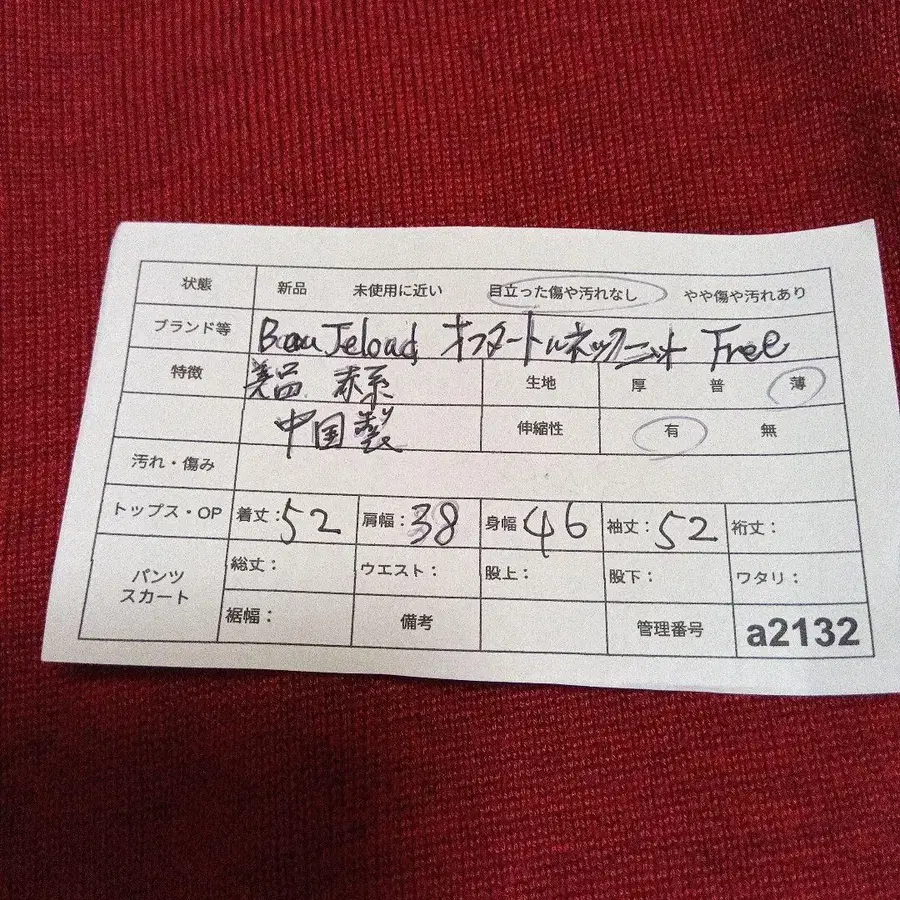 状態 新品 未使用に近い 目立った傷や汚れなし やや傷や汚れあり
ブランド等 Beau Jeload オフタートルネックニット Free
特徴 美品 赤系 生地 厚 普 薄
中国製 伸縮性 有 無
汚れ・傷み
トップス・OP 着丈:52 肩幅:38 身幅46 袖丈:52 裄丈:
パンツ スカート 総丈: ウエスト: 股上: 股下: ワタリ:
裾幅: 備考 管理番号 a2132